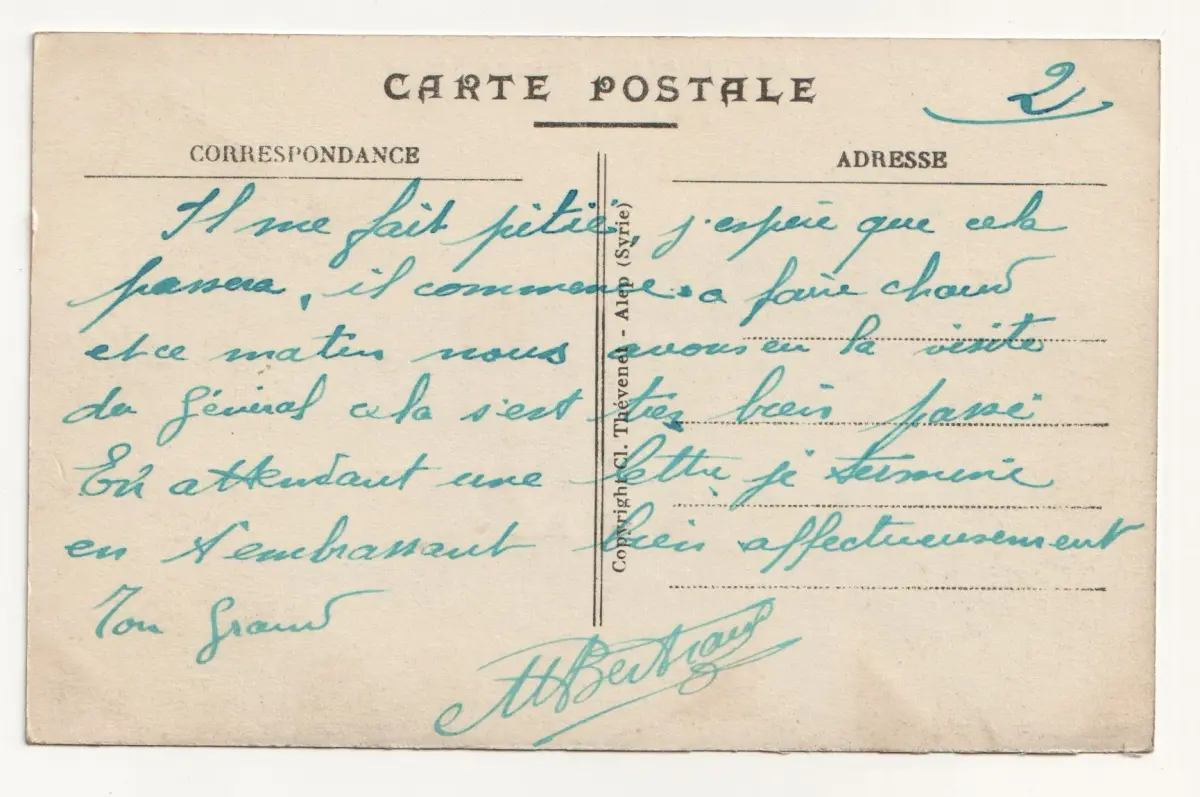 CARTE POSTALE
2
CORRESPONDANCE
ADRESSE
Il me fait pitié, j'espère que cela
passera, il commence a faire chaud
et ce matin nous avons eu la visite
du Général cela s'est très bien passé
En attendant une lettre je termine
en t'embrassant bien affectueusement
Ton grand
MBertrand
Copyright Cl. Thévenet - Alep (Syrie)